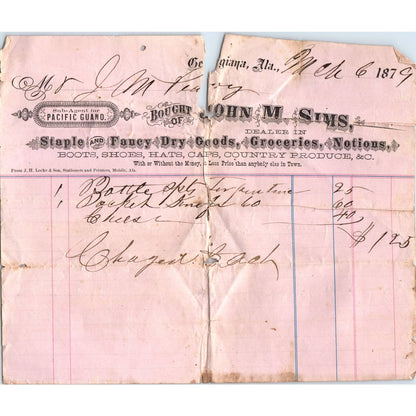 Georgiana, Ala., Mch 6 1879
Mr J. M.
Sub-Agent for
PACIFIC GUANO.
BOUGHT OF JOHN M. SIMS,
DEALER IN
Staple AND Fancy Dry Goods, Groceries, Notions,
BOOTS, SHOES, HATS, CAPS, COUNTRY PRODUCE, &C.
With or Without the Money, at Less Price than anybody else in Town.
From J. H. Locke & Son, Stationers and Printers, Mobile, Ala.
1 Bottle Spts Turpentine 25
1 Pocket Knife 60 60
Cheese 40
$1 25